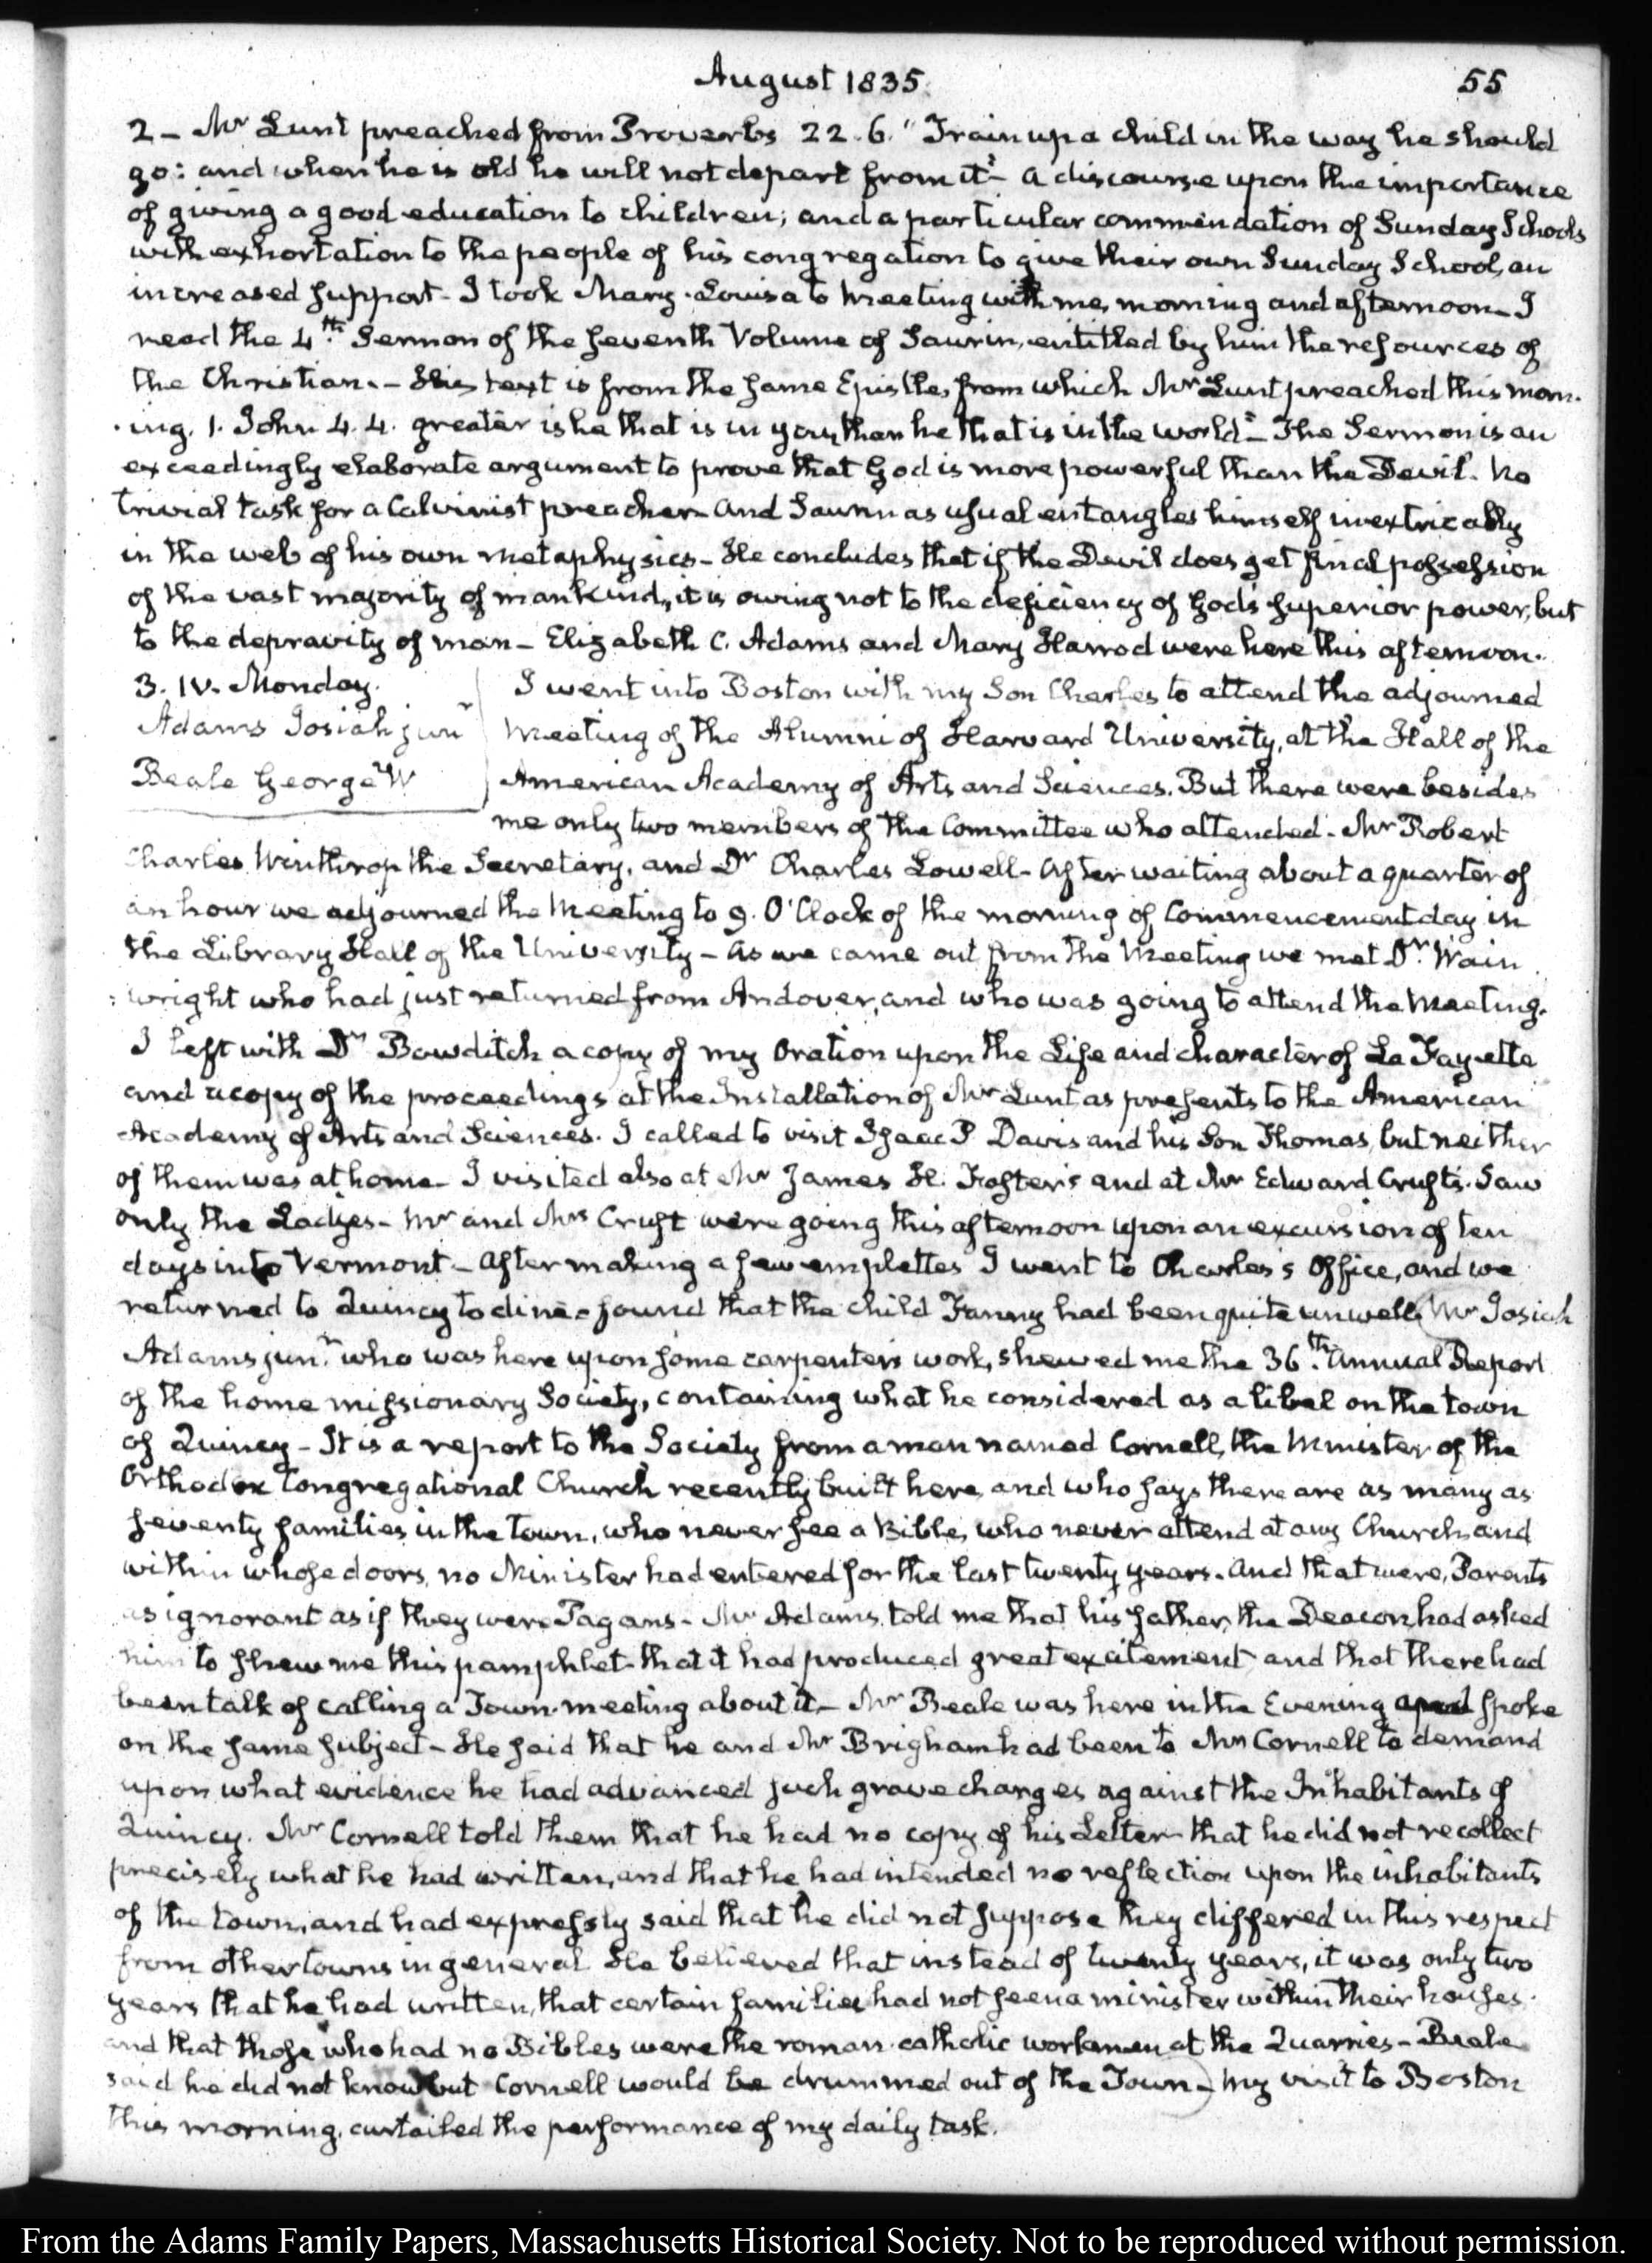 August 1835.
55
2 – Mr Lunt preached from Proverbs 22. 6. "Train up a child in the way he should
go: and when he is old he will not depart from it" – a discourse upon the importance
of giving a good education to children; and a particular commendation of Sunday Schools
with exhortation to the people of his congregation to give their own Sunday School, an
increased support – I took Mary-Louisa to Meeting with me, morning and afternoon – I
read the 4th. Sermon of the seventh Volume of Saurin, entitled by him the resources of
the Christian. – His text is from the same Epistle, from which Mr Lunt preached this morn-
-ing. 1. John 4. 4. greater is he that is in you, than he that is in the world" – The Sermon is an
exceedingly elaborate argument to prove that God is more powerful than the Devil. No
trivial task for a Calvinist preacher – And Saurin as usual entangles himself inextricably
in the web of his own metaphysics – He concludes that if the Devil does get final possession
of the vast majority of mankind, it is owing not to the deficiency of God's superior power, but
to the depravity of man – Elizabeth C. Adams and Mary Harrod were here this afternoon.
3. IV. Monday.
Adams Josiah junr
Beale George W
I went into Boston with my Son Charles to attend the adjourned
Meeting of the Alumni of Harvard University, at the Hall of the
American Academy of Arts and Sciences. But there were besides
me only two members of the Committee who attended. Mr Robert
Charles Winthrop the Secretary, and Dr Charles Lowell – After waiting about a quarter of
an hour we adjourned the Meeting to 9. O'Clock of the morning of Commencement day in
the Library Hall of the University – As we came out from the Meeting we met Dr. Wain
:wright who had just returned from Andover, and who was going to attend the Meeting.
I left with Dr Bowditch a copy of my Oration upon the Life and character of La Fayette
and a copy of the proceedings at the Installation of Mr Lunt as presents to the American
Academy of Arts and Sciences. I called to visit Isaac P Davis and his Son Thomas, but neither
of them was at home – I visited also at Mr James H. Foster's and at Mr Edward Cruft's. Saw
only the Ladies – Mr and Mrs Cruft were going this afternoon upon an excursion of ten
days into Vermont – After making a few emplettes I went to Charles's Office, and we
returned to Quincy to dine – found that the child Fanny had been quite unwell. Mr Josiah
Adams junr. who was here upon some carpenters work, shewed me the 36th. Annual Report
of the home missionary Society, containing what he considered as a libel on the town
of Quincy – It is a report to the Society from a man named Cornell, the Minister of the
Orthodox Congregational Church recently built here, and who says there are as many as
seventy families in the town, who never see a Bible, who never attend at any Church, and
within whose doors, no Minister had entered for the last twenty years. And that were, Parents
as ignorant as if they were Pagans – Mr Adams, told me that his father, the Deacon, had asked
him to shew me this pamphlet – that it had produced great excitement and that there had
been talk of calling a Town-meeting about it – Mr Beale was here in the Evening and spoke
on the same subject – He said that he and Mr Brigham had been to Mr Cornell to demand
upon what evidence he had advanced such grave charges against the Inhabitants of
Quincy. Mr Cornell told them that he had no copy of his Letter – that he did not recollect
precisely what he had written, and that he had intended no reflection upon the inhabitants
of the town, and had expressly said that he did not suppose they differed in this respect
from other towns in general. He believed that instead of twenty years, it was only two
years that he had written, that certain families had not seen a minister within their houses.
and that those who had no Bibles were the roman catholic workmen at the Quarries – Beale
said he did not know but Cornell would be drummed out of the Town – My visit to Boston
this morning, curtailed the performance of my daily task.
From the Adams Family Papers, Massachusetts Historical Society. Not to be reproduced without permission.